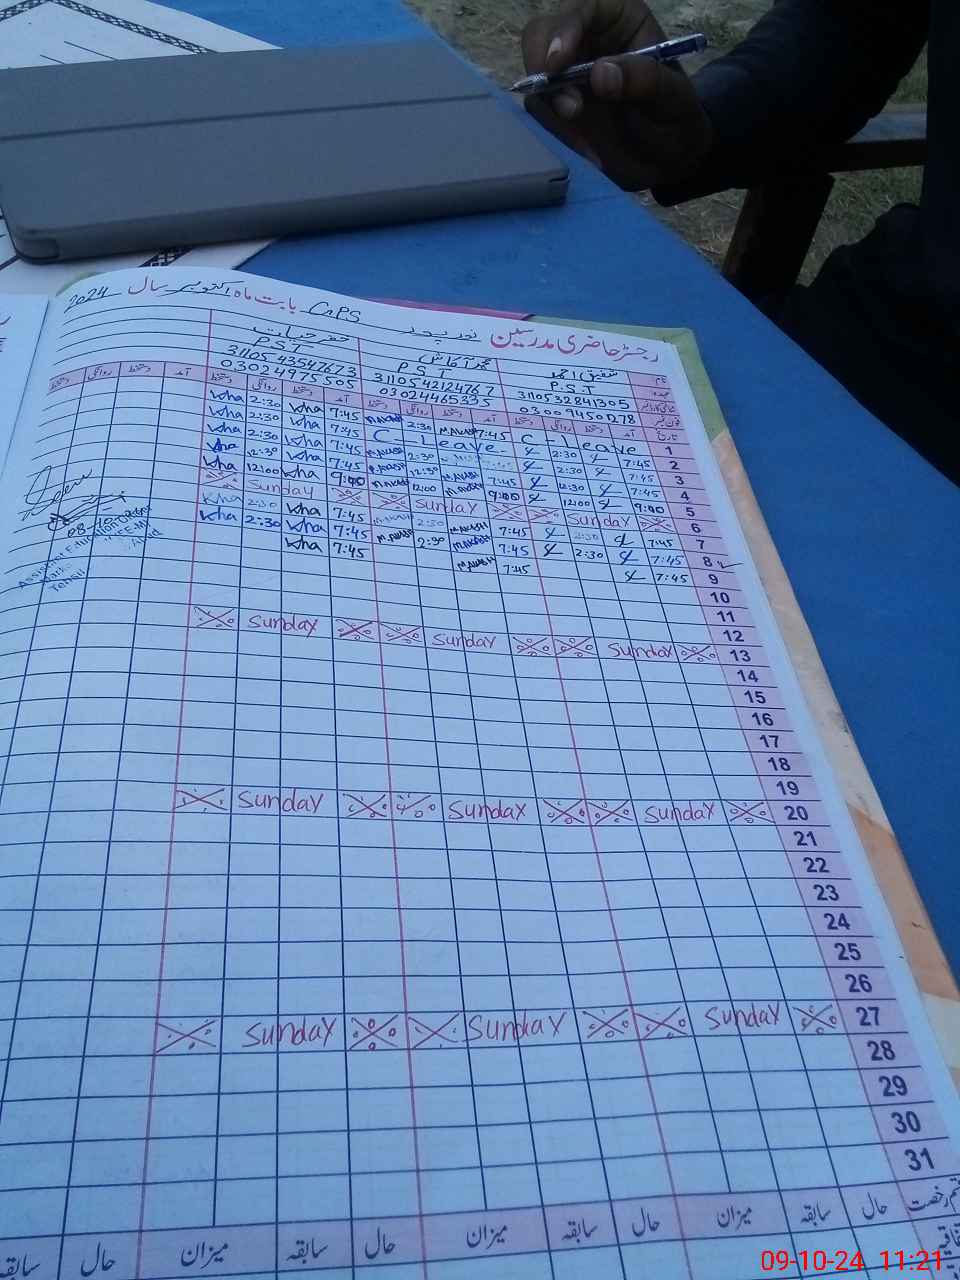 رجسٹر حاضری مدرسین نور پور GPS بابت ماہ اکتوبر سال 2024
نام شفیق احمد محمد آکاش خضر حیات
عہدہ P.S.T P S T P S T
3110532841305 3110542124767 3110543547673
03009450278 03024465335 03024975505
تاریخ آمد دستخط روانگی دستخط آمد دستخط روانگی دستخط آمد دستخط روانگی دستخط آمد دستخط روانگی دستخط
1 C - leave 7:45 M.AKASH 2:30 7:45 Wha 2:30 Wha
2 7:45 2:30 C - Leave 7:45 Wha 2:30 Wha
3 7:45 2:30 2:30 7:45 Wha 2:30 Wha
4 7:45 12:30 7:45 M.AKASH 12:30 7:45 Wha 12:30 Wha
5 9:00 12:00 9:00 M.AKASH 12:00 9:00 Wha 12:00 Wha
6 Sunday Sunday Sunday
7 7:45 2:30 7:45 M.AKASH 2:30 7:45 Wha 2:30 Wha
8 7:45 2:30 7:45 M.AKASH 2:30 7:45 Wha 2:30 Wha
9 7:45 7:45 M.AKASH 7:45 Wha
08-10-
Assistant Education Officer
Tehsil
10
11
12
13 Sunday Sunday Sunday
14
15
16
17
18
19
20 Sunday Sunday Sunday
21
22
23
24
25
26
27 Sunday Sunday Sunday
28
29
30
31
قسم رخصت حال سابقہ میزان حال سابقہ میزان حال سابقہ میزان حال سابقہ
اتفاقیہ
09-10-24 11:21